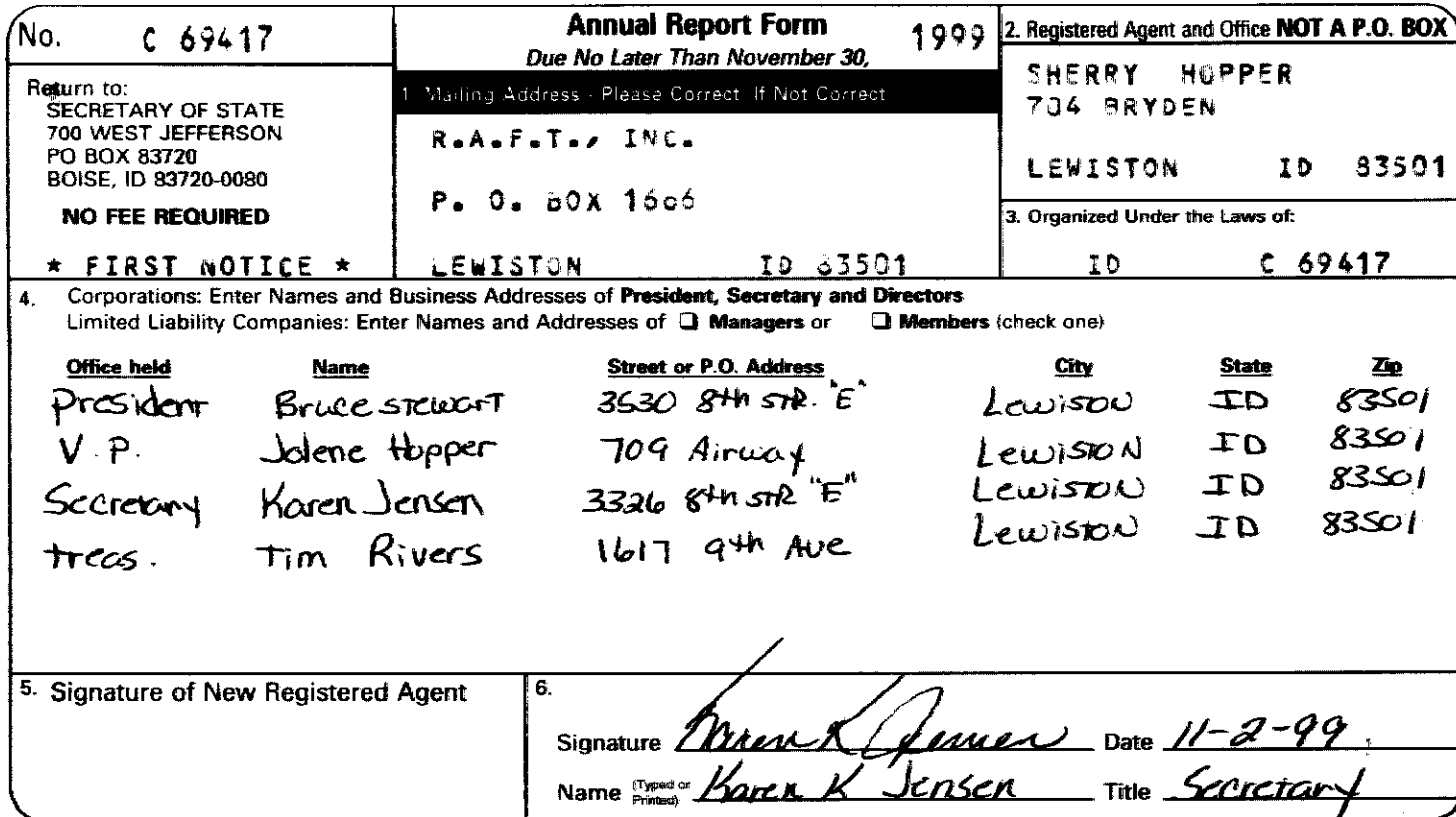 No. C 69417
Return to:
SECRETARY OF STATE
700 WEST JEFFERSON
PO BOX 83720
BOISE, ID 83720-0080
NO FEE REQUIRED
* FIRST NOTICE *
Annual Report Form 1999
Due No Later Than November 30,
1. Mailing Address - Please Correct If Not Correct
R.A.F.T., INC.
P. O. BOX
LEWISTON ID 83501
2. Registered Agent and Office NOT A P.O. BOX
SHERRY HOPPER
704 BRYDEN
LEWISTON ID 83501
3. Organized Under the Laws of:
ID C 69417
4. Corporations: Enter Names and Business Addresses of President, Secretary and Directors
Limited Liability Companies: Enter Names and Addresses of ❑ Managers or ❑ Members (check one)
Office held Name Street or P.O. Address City State Zip
President Bruce Stewart 3530 8th STR. "E" Lewison ID 83501
V.P. Jolene Hopper 709 Airway Lewiston ID 83501
Secretary Karen Jensen 3326 8th STR "E" Lewiston ID 83501
treas. Tim Rivers 1617 9th Ave Lewiston ID 83501
5. Signature of New Registered Agent
6.
Signature Karen K Jensen Date 11-2-99
Name (Typed or Printed) Karen K Jensen Title Secretary